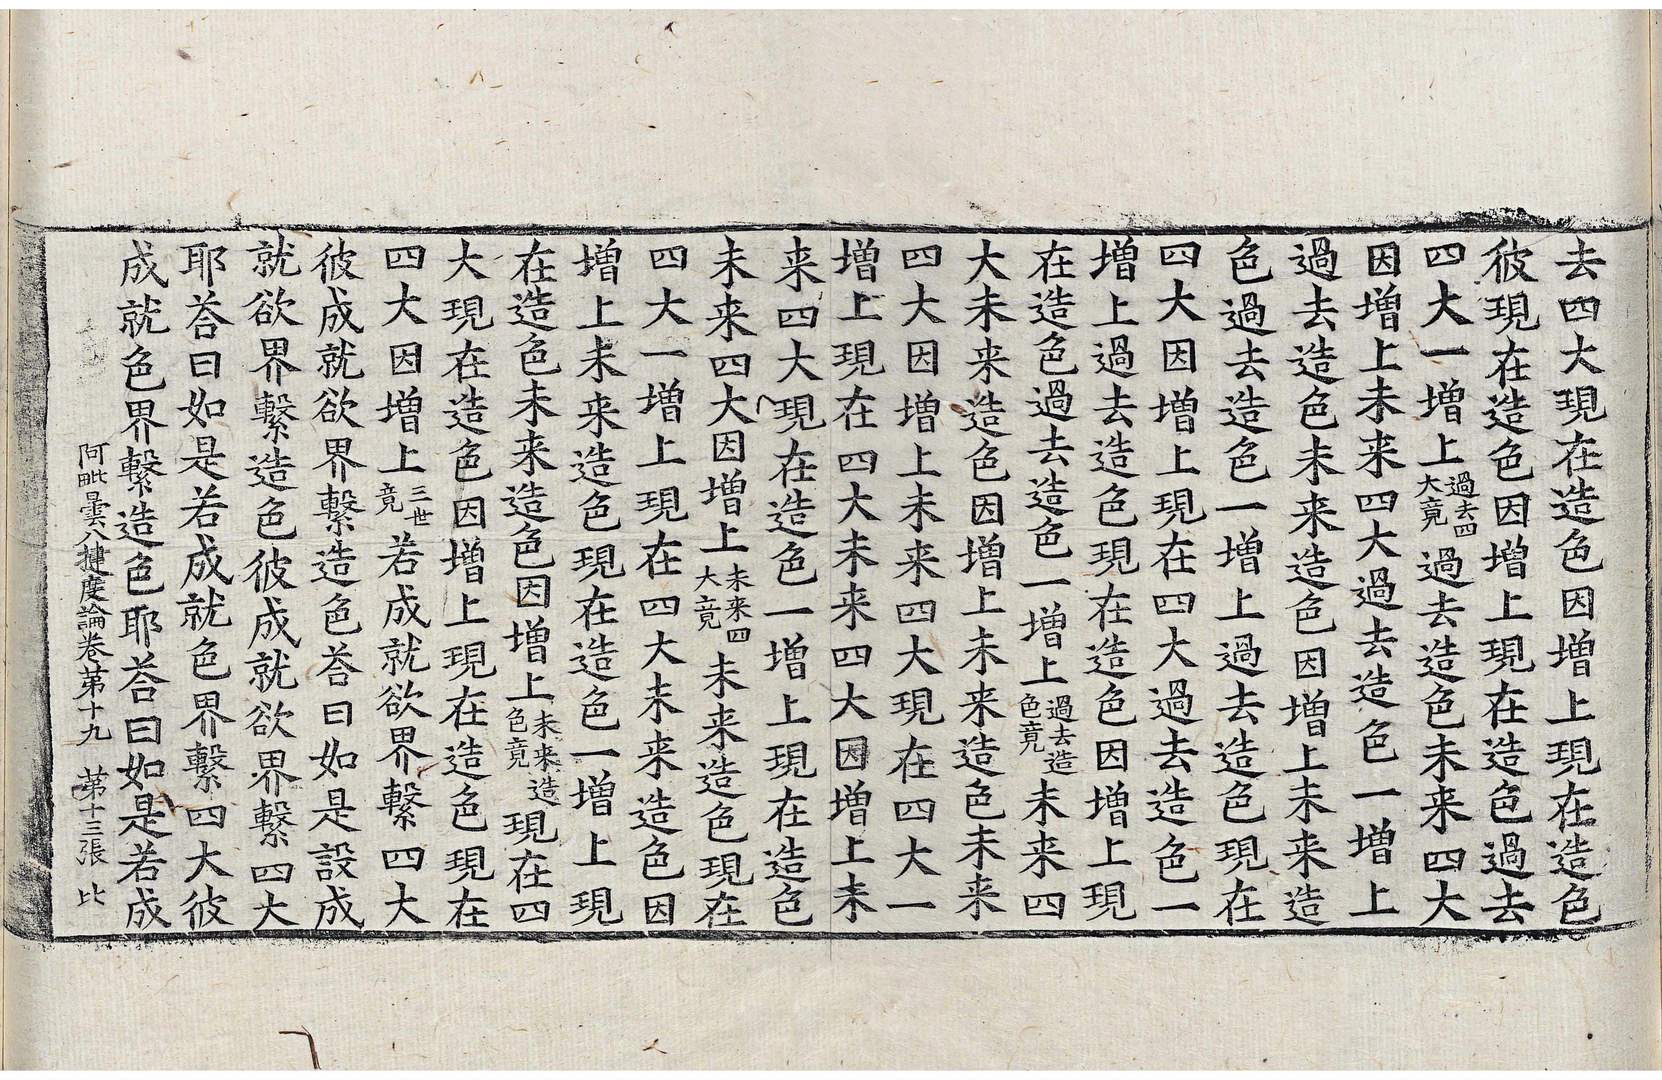 去四大現在造色因增上現在造色
彼現在造色因增上現在造色過去
四大一增上過去四大竟過去造色未来四大
因增上未来四大過去造色一增上
過去造色未来造色因增上未来造
色過去造色一增上過去造色現在
四大因增上現在四大過去造色一
增上過去造色現在造色因增上現
在造色過去造色一增上過去造色竟未来四
大未来造色因增上未来造色未来
四大因增上未来四大現在四大一
增上現在四大未来四大因增上未
来四大現在造色一增上現在造色
未来四大因增上未来四大竟未来造色現在
四大一增上現在四大未来造色因
增上未来造色現在造色一增上現
在造色未来造色因增上未来造色竟現在四
大現在造色因增上現在造色現在
四大因增上三世竟若成就欲界繫四大
彼成就欲界繫造色荅曰如是設成
就欲界繫造色彼成就欲界繫四大
耶荅曰如是若成就色界繫四大彼
成就色界繫造色耶荅曰如是若成
阿毗曇八揵度論卷第十九 第十三張 比